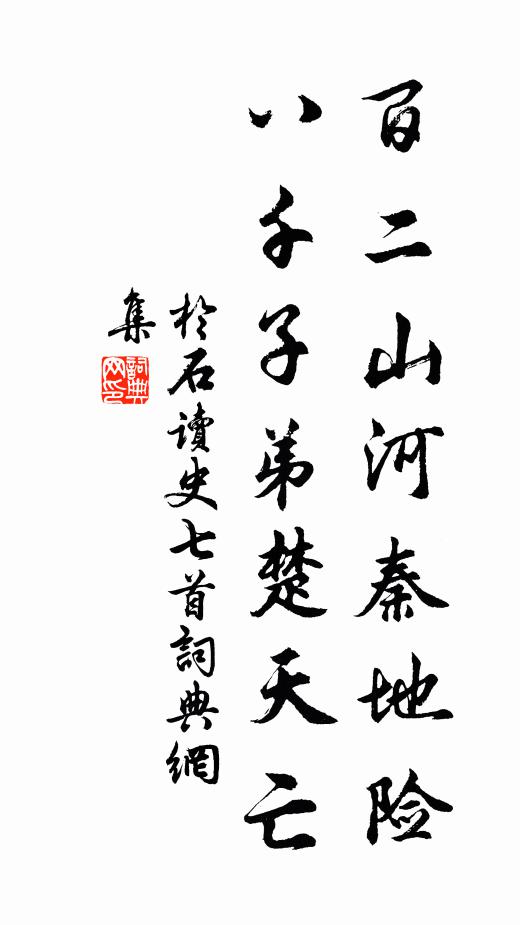 百二山河秦地险
八千子弟楚天亡
於石讀史七首詞典網
集
詞典
网印